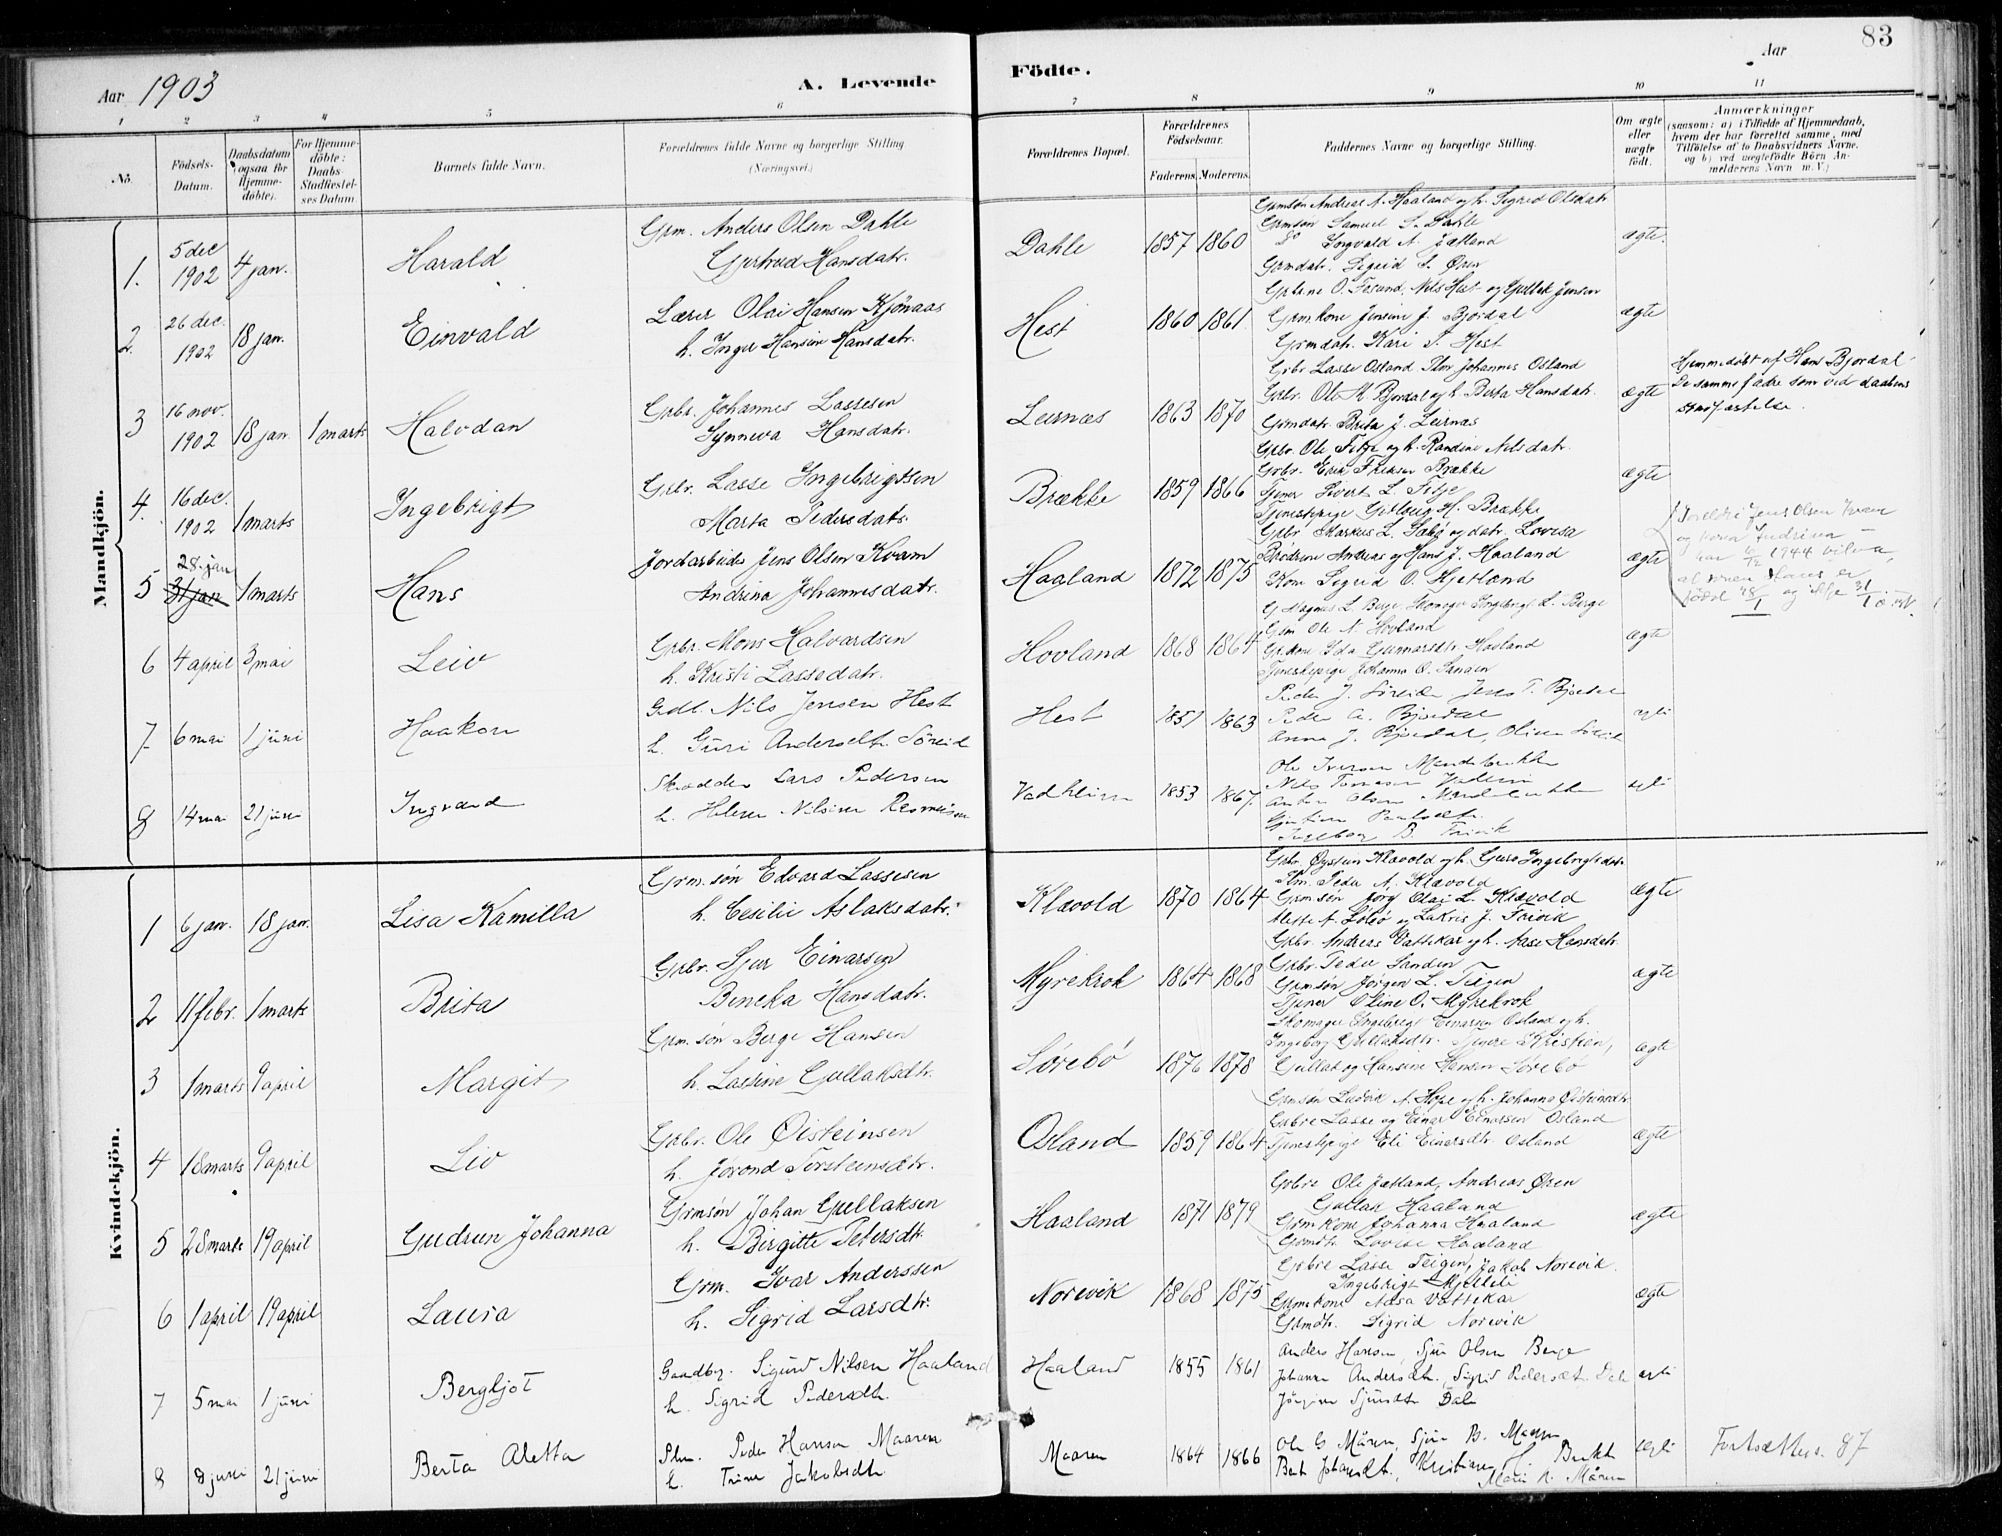 83
Aar 1903 A. Levende Födte. Aar
1 2 3 4 5 6 7 8 9 10 11
No. Födsels-Datum. Daabsdatum (ogsaa for Hjemmedöbte). For Hjemmedöbte: Daabs-Stadfæstelses Datum Barnets fulde Navn. Forældrenes fulde Navne og borgerlige Stilling (Næringsvei.) Forældrenes Bopæl. Forældrenes Födselsaar. Faderens. Moderens. Faddernes Navne og borgerlige Stilling. Om ægte eller uægte födt. Anmærkninger (saasom: a) i Tilfælde af Hjemmedaab, hvem der har forrettet samme, med Tilföielse af to Daabsvidners Navne. og b) ved uægtefödte Börn Anmelderens Navn m. V.)
Mandkjön.
1. 5 dec 1902 4 jan. Harald Grm. Anders Olsen Dahle Gjertrud Hansdatr. Dahle 1857 1860 Grmsön Andreas A. Haaland og h. Sigrid Olsdatr
Grmsön Samuel S. Dahle
Do Ingvald A. Jætland
Grmdatr. Sigrid S. Øren ægte.
2. 26 dec. 1902 18 jan. Einvald Lærer Olai Hansen Kjönaas h. Inger Hansine Hansdatr. Hest 1860 1861 Nils Hest og Gullak Jensen
Grm.kone Jensine J. Bjordal
Grmdatr. Kari J. Hest ægte
3 16 nov. 1902 18 jan 1 marts Halvdan Grbr. Johannes Lassesen Synneva Hansdatr. Leirnæs 1863 1870 Grbr Lasse Osland Plm Johannes Osland
Grbr. Ole M. Bjordal og h. Berta Hansdatr.
Grmdatr. Brita J. Leirnæs ægte Hjemmedöbt af Hans Bjordal
De samme fadre som ved daabens
stadfæstelse.
4. 16 dec. 1902 1 marts Ingebrigt Grbr. Lasse Ingebrigtsen Marta Pedersdatr. Brække 1859 1866 Grbr. Ole Fitje og h. Randine Nilsdatr.
Grbr. Erik Brække
Tjener Sivert L. Fitje
Tjenestepige Brække ægte
5 28 jan 31 jan 1 marts Hans Jordarbeider Jens Olsen Kvam Andrina Johannesdatr. Haaland 1872 1875 Grbr Markus L. Sæbø og datr. Lovisa
Brödrene Andreas og Hans J. Haaland
Kone Sigrid O. Hjetland ægte Foreldri Jens Olsen Kvam
og kona Andrina
har 6/12 1944 vitna,
at sonen Hans er
född 28/1 og ikkje 31/1
6 4 april 3 mai Leiv Grbr. Mons Halvardsen h. Kristi Lassedatr. Hovland 1868 1864 G. Magnus L. Berge, Skomager Ingebrigt L. Berge
Gbm Ole N. Hovland
Ida Gunnarsdtr Hovland
Tjenestepige Johanna O. Sanden ægte
7 6 mai 1 juni Haakon Gdb. Nils Jensen Hest h. Guri Andersdtr. Söreide Hest 1851 1863 Peder J. Söreide, Jens T. Bjordal
Peder A. Bjordal
Anna J. Bjordal, Oline Söreide ægte
8 14 mai 21 juni Ingvard Skrædder Lars Pedersen h. Helene Nilsine Rasmussen Vadheim 1853 1867. Ole Iversen
Nils Vadheim
Anton Olsen
Ingeborg B. ægte
Kvindekjön.
1 6 jan. 18 jan. Lisa Kamilla Grm.sön Edvard Lassesen h. Cesilie Aslaksdatr. Klævold 1870 1864 Grbr. Øystein Klævold og h. Guro Ingebrigtsdatr.
Plm. Peder A. Klævold
Grmsön Olai L. Klævold ægte
2 11 febr. 1 marts Brita Grbr. Sjur Einarsen Bencka Hansdatr. Myrekrok 1864 1868 Grbr. Andreas Vattekar og h. Aase Hansdatr.
Grbr. Peder Sanden
Grmsön Jörgen L. Teigen
Tjener Oline O. Myrekrok ægte
3 1 marts 9 april Margit Grm.sön Berge Hansen h. Lassine Gullaksdtr. Sörebö 1876 1878 Skomager Ingebrigt Einarsen Osland og h.
Ingeborg Gullaksdtr.
Gullak og Hansine Hansen Sörebö ægte
4 18 marts 9 april Liv Grbr. Ole Øisteinsen h. Jörond Torsteinsdtr. Osland 1859 1864 Grmsön Ludvik A. Hope og h. Johanna Øisteinsdtr.
Grbre Lasse og Einar Einarsen Osland
Tjenestepige Eli Einarsdtr. Osland ægte
5 28 marts 19 april Gudrun Johanna Grmsön Johan Gullaksen h. Birgitte Petersdtr. Haaland 1871 1879 Grbre Ole Jætland, Andreas Øren
Gullak Haaland
Grmkone Johanna Haaland
Grmdtr. Lovise Haaland ægte
6 1 april 19 april Laura Grm. Ivar Anderssen h. Sigrid Larsdtr. Norevik 1868 1875 Grbre Lasse Teigen, Jakob Norevik.
Ingebrigt
Grmkone Aasa Vattekar
Grmdtr. Sigrid Norevik ægte
7 5 mai 1 juni Bergljot Gaardbr. Sigurd Nilsen Haaland h. Sigrid Pedersdtr. Haaland 1855 1861 Anders Hansen, Sjur Olsen Berge
Johanne Andersdtr., Sigrid Pedersdtr. Dale
Jörgine Sjursdtr Dale ægte
8 8 juni 21 juni Berta Aletta Plm. Peder Hansen Maaren h. Trine Jakobsdtr. Maaren 1864 1866 Ole G Mären, Sjur B. Maaren
Mari N. Mären ægte Fortsættes. 87